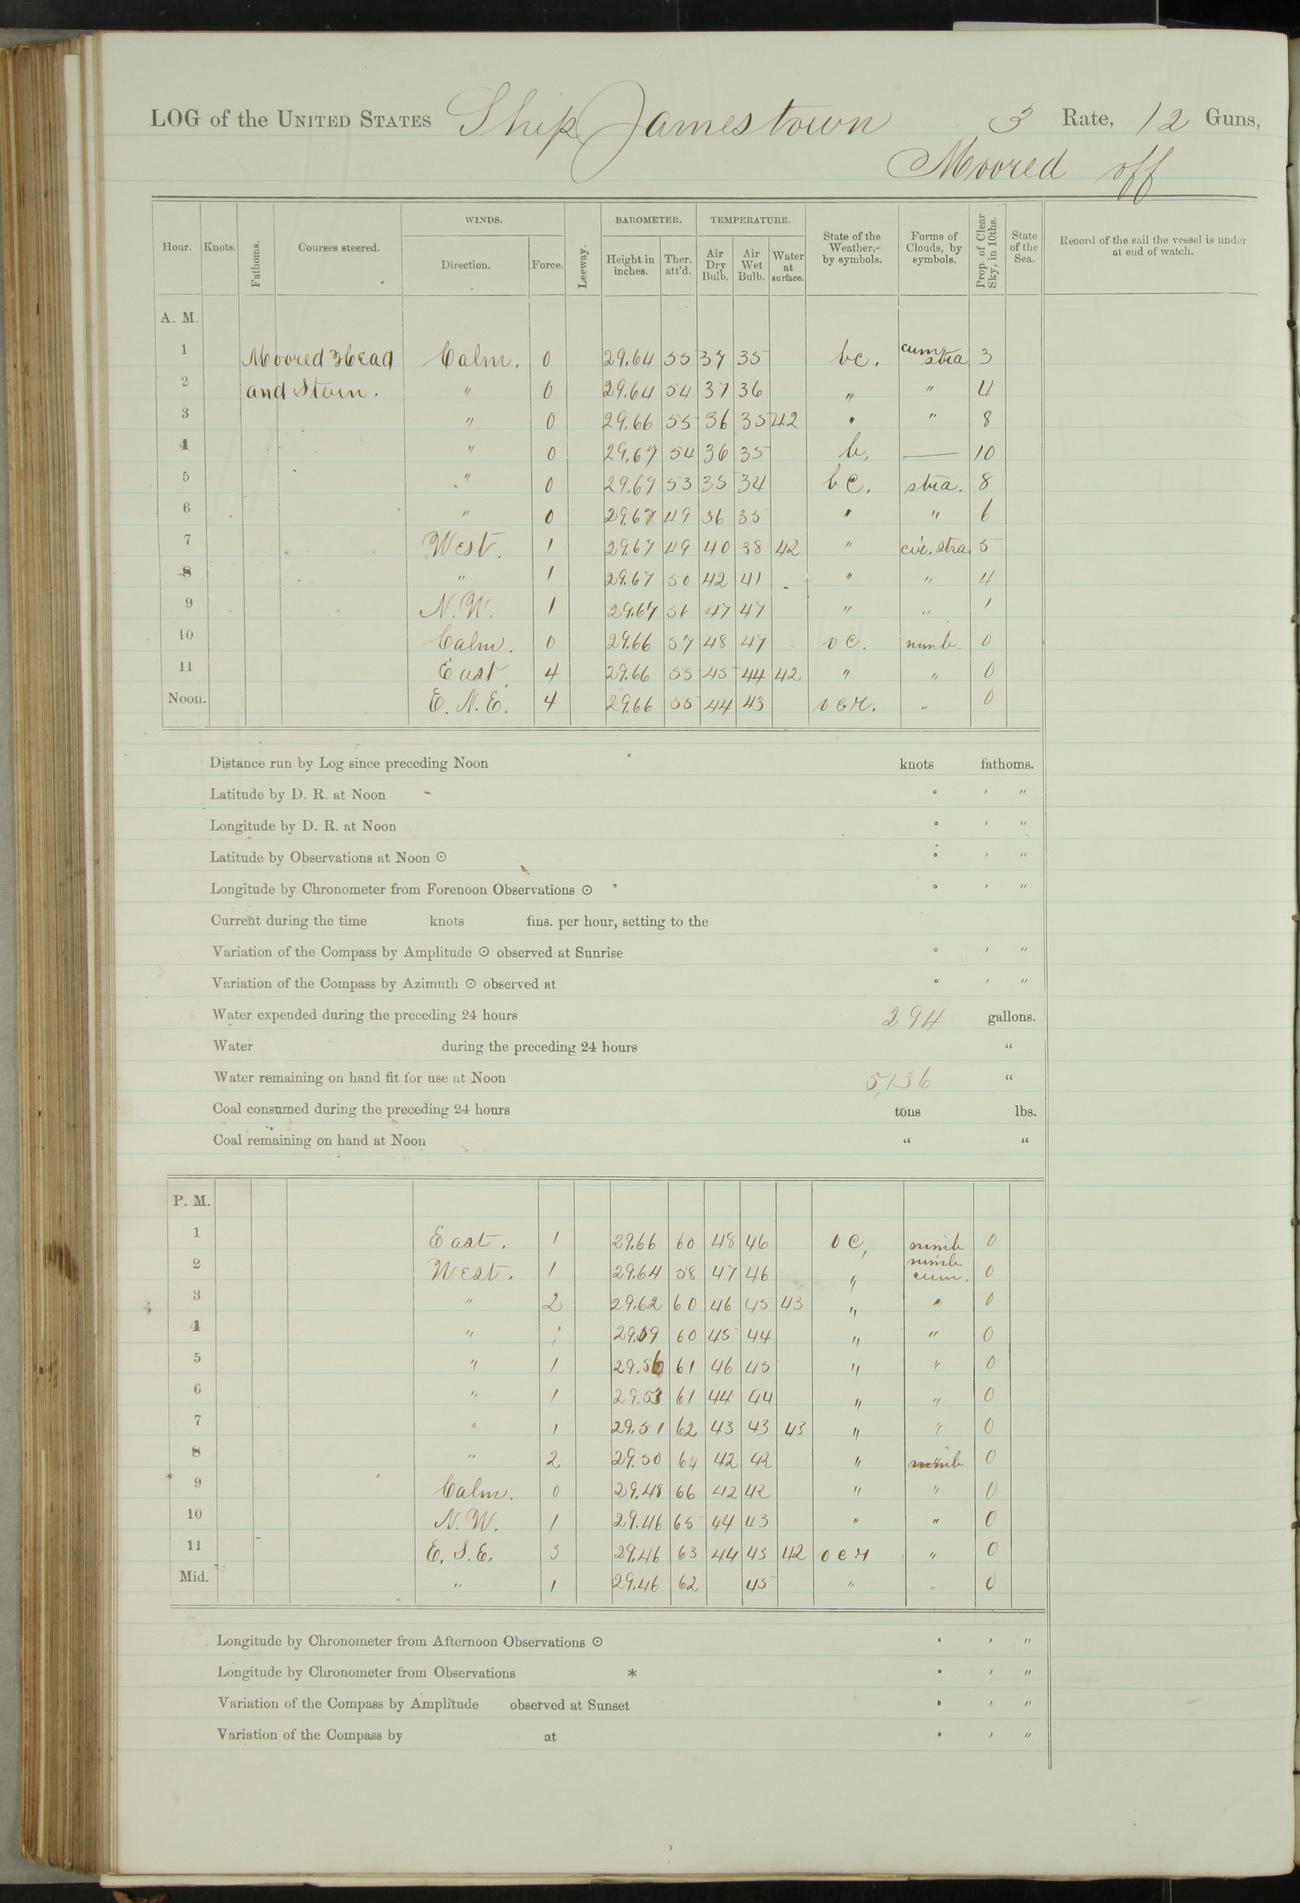 LOG of the UNITED STATES Ship Jamestown 3 Rate, 12 Guns,
Moored off
Hour. Knots. Fathoms. Courses steered. WINDS. Direction. Force. Leeway. BAROMETER. Height in inches. Ther. att'd. TEMPERATURE. Air Dry Bulb. Air Wet Bulb. Water at surface. State of the Weather, by symbols. Forms of Clouds, by symbols. Prop. of Clear Sky, in 10ths. State of the Sea. Record of the sail the vessel is under at end of watch.
A. M.
1 Moored Head Calm. 0 29.64 55 37 35 bc. cum stra 3
2 and Stern. " 0 29.64 54 37 36 " " 4
3 " 0 29.66 55 36 35 42 " " 8
4 " 0 29.67 54 36 35 b. — 10
5 " 0 29.67 53 35 34 bc. stra. 8
6 " 0 29.67 49 36 35 " " 6
7 West. 1 29.67 49 40 38 42 " cir. stra. 5
8 " 1 29.67 50 42 41 " " 4
9 N.W. 1 29.67 56 47 47 " " 1
10 Calm. 0 29.66 57 48 47 oc. nimb. 0
11 East. 4 29.66 55 45 44 42 " " 0
Noon. E.N.E. 4 29.66 55 44 43 ocr. " 0
Distance run by Log since preceding Noon knots fathoms.
Latitude by D. R. at Noon ° ' "
Longitude by D. R. at Noon ° ' "
Latitude by Observations at Noon ☉ ° ' "
Longitude by Chronometer from Forenoon Observations ☉ ° ' "
Current during the time knots fms. per hour, setting to the
Variation of the Compass by Amplitude ☉ observed at Sunrise ° ' "
Variation of the Compass by Azimuth ☉ observed at ° ' "
Water expended during the preceding 24 hours 294 gallons.
Water during the preceding 24 hours "
Water remaining on hand fit for use at Noon 5,136 "
Coal consumed during the preceding 24 hours tons lbs.
Coal remaining on hand at Noon " "
P. M.
1 East. 1 29.66 60 48 46 oc, nimb 0
2 West. 1 29.64 58 47 46 " nimb cum. 0
3 " 2 29.62 60 46 45 43 " " 0
4 " 29.59 60 45 44 " " 0
5 " 1 29.56 61 46 45 " " 0
6 " 1 29.53 61 44 44 " " 0
7 " 1 29.51 62 43 43 43 " " 0
8 " 2 29.50 64 42 42 " nimb 0
9 Calm. 0 29.48 66 42 42 " " 0
10 N.W. 1 29.46 65 44 43 " " 0
11 E.S.E. 3 29.46 63 44 43 42 ocr " 0
Mid. " 1 29.46 62 45 " " 0
Longitude by Chronometer from Afternoon Observations ☉ ° ' "
Longitude by Chronometer from Observations * ° ' "
Variation of the Compass by Amplitude observed at Sunset ° ' "
Variation of the Compass by at ° ' "